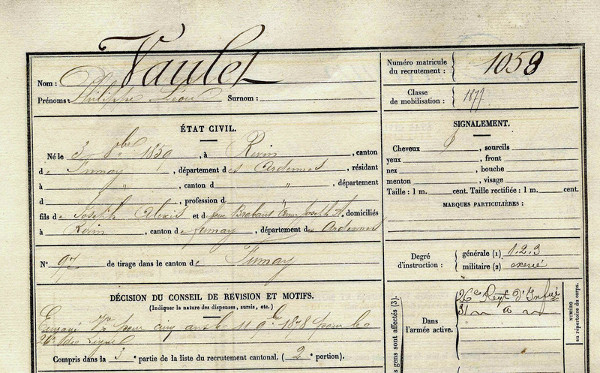 Nom : Vaulet
Prénoms : Philippe Léon Surnom :
Numéro matricule du recrutement : 1059
Classe de mobilisation : 1877
ÉTAT CIVIL.
Né le 3 8bre 1859, à Revin, canton
de Fumay, département des Ardennes, résidant
à " , canton d " , département d
" , profession d
fils de Joseph Alexis et de domiciliés
à Revin, canton de Fumay, département des Ardennes
N° 97 de tirage dans le canton de Fumay
DÉCISION DU CONSEIL DE REVISION ET MOTIFS.
(Indiquer la nature des dispenses, sursis, etc.)
Engagé pour cinq ans le 11 1878
de Ligne
Compris dans la 3e partie de la liste du recrutement cantonal. (2e portion).
SIGNALEMENT.
Cheveux , sourcils
yeux , front
nez , bouche
menton , visage
Taille : 1 m. cent. Taille rectifiée : 1 m. cent.
MARQUES PARTICULIÈRES :
Degré d'instruction : générale (1) 1.2.3
militaire (2) exercé
gens sont affectés (3).
Dans l'armée active.
26e Régt d'Infie
au répertoire du corps.